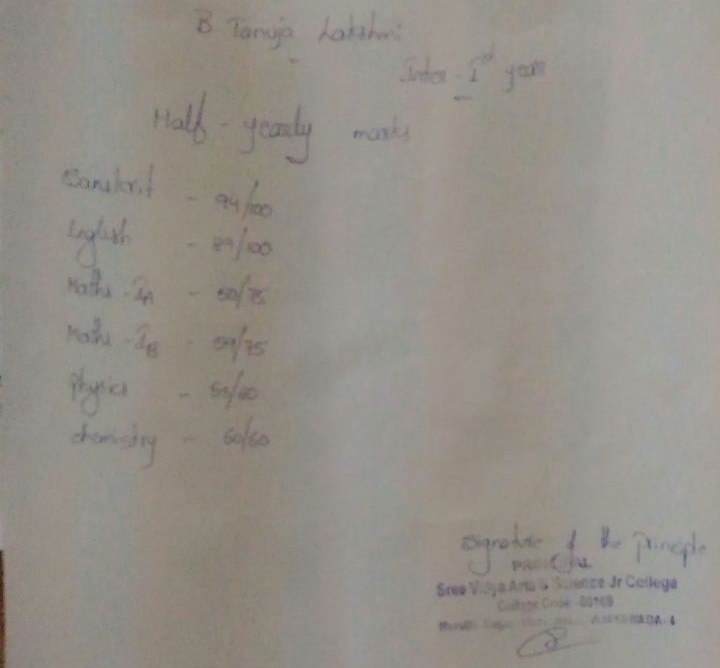 B Tanuja Lakshmi
Inter - Ist year
Half - yearly marks
Sanskrit - 94/100
English - 89/100
Maths - IA - 50/75
Maths - IB - 59/75
physics - 55/60
chemistry - 60/60
Signature of the principle
Sree Vidya Arts & Science Jr College
College Code